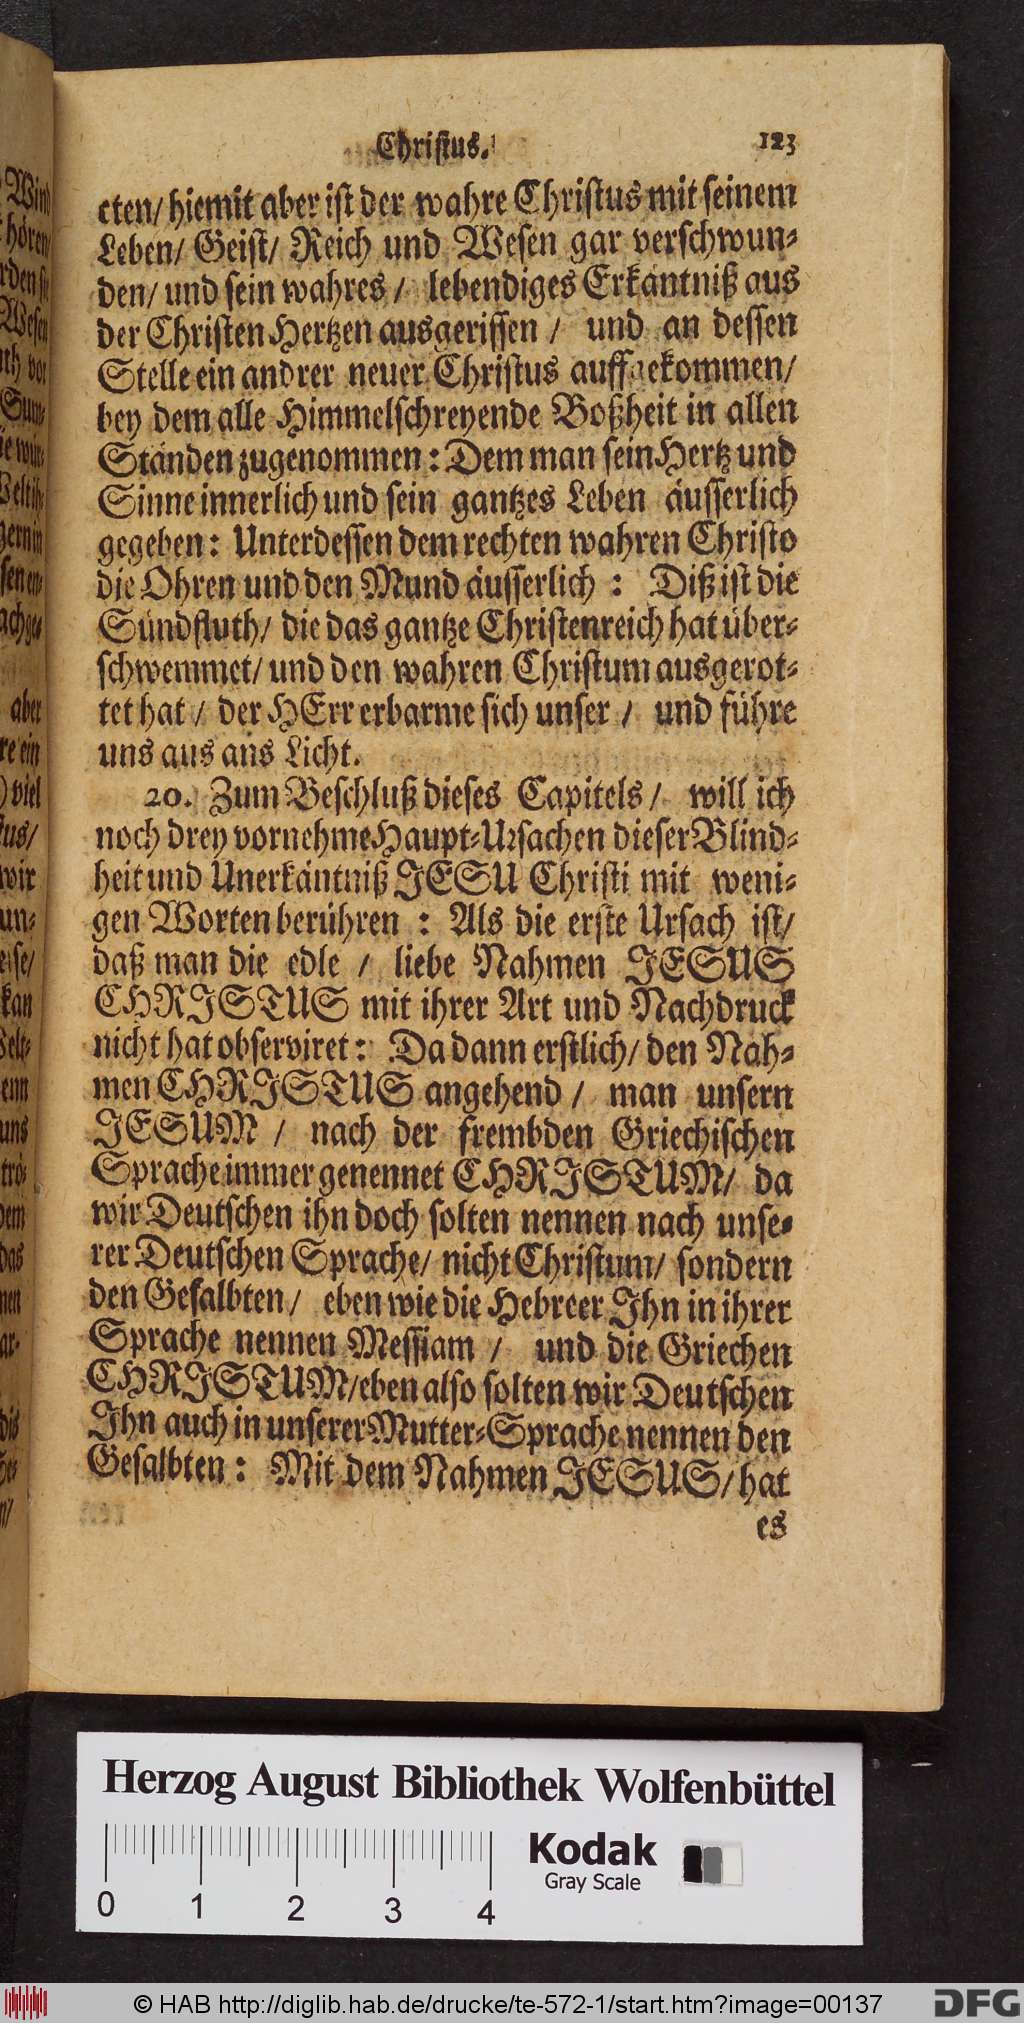 Christus. 123
cten/ hiemit aber ist der wahre Christus mit seinem
Leben/ Geist/ Reich und Wesen gar verschwun-
den/ und sein wahres / lebendiges Erkäntniß aus
der Christen Hertzen ausgerissen / und an dessen
Stelle ein andrer neuer Christus auffgekommen/
bey dem alle Himmelschreyende Boßheit in allen
Ständen zugenommen: Dem man sein Hertz und
Sinne innerlich und sein gantzes Leben äusserlich
gegeben: Unterdessen dem rechten wahren Christo
die Ohren und den Mund äusserlich : Diß ist die
Sündfluth/ die das gantze Christenreich hat über-
schwemmet/ und den wahren Christum ausgerot-
tet hat / der HErr erbarme sich unser / und führe
uns aus ans Licht.
20. Zum Beschluß dieses Capitels / will ich
noch drey vornehme Haupt-Ursachen dieser Blind-
heit und Unerkäntniß JESU Christi mit weni-
gen Worten berühren : Als die erste Ursach ist/
daß man die edle / liebe Nahmen JESUS
CHRISTUS mit ihrer Art und Nachdruck
nicht hat observiret: Da dann erstlich/ den Nah-
men CHRISTUS angehend / man unsern
JESUM / nach der frembden Griechischen
Sprache immer genennet CHRISTUM/ da
wir Deutschen ihn doch solten nennen nach unse-
rer Deutschen Sprache/ nicht Christum/ sondern
den Gesalbten/ eben wie die Hebreer Ihn in ihrer
Sprache nennen Messiam / und die Griechen
CHRISTUM/ eben also solten wir Deutschen
Ihn auch in unserer Mutter-Sprache nennen den
Gesalbten: Mit dem Nahmen JESUS/ hat
es
Herzog August Bibliothek Wolfenbüttel
Kodak
Gray Scale
0 1 2 3 4
© HAB http://diglib.hab.de/drucke/te-572-1/start.htm?image=00137
DFG